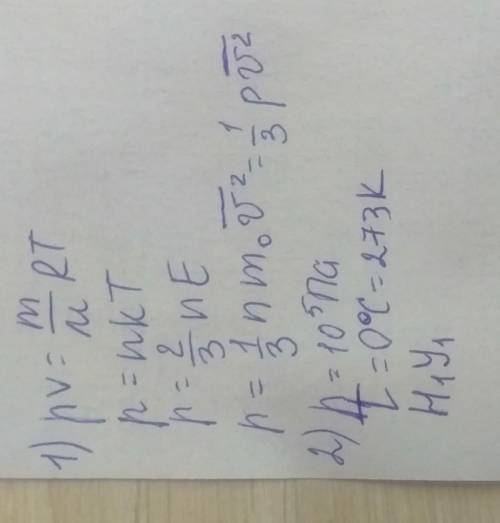 1) pV = m/μ RT
p = nkT
p = 2/3 nE
p = 1/3 n m₀ v̅² = 1/3 ρ v̅²
2) p = 10⁵ Па
t = 0°C = 273К
Н.У.